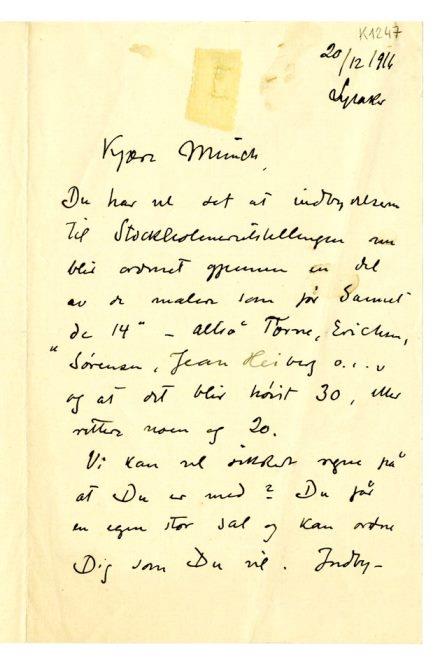 K1247
20/12 1916
Lysaker
Kjære Munch,
Du har vel set at indbydelsen
til Stockholmerutstillingen nu
blir ordnet gjennem en del
av de malere som før dannet
de 14" – altsaa Torne, Erichsen,
" Sørensen, Jean Heiberg o.s.v
og at det blir høist 30, eller
rettere noen og 20.
Vi kan vel sikkert regne på
at Du er med? Du får
en egen stor sal og kan ordne
Dig som Du vil. Indby-